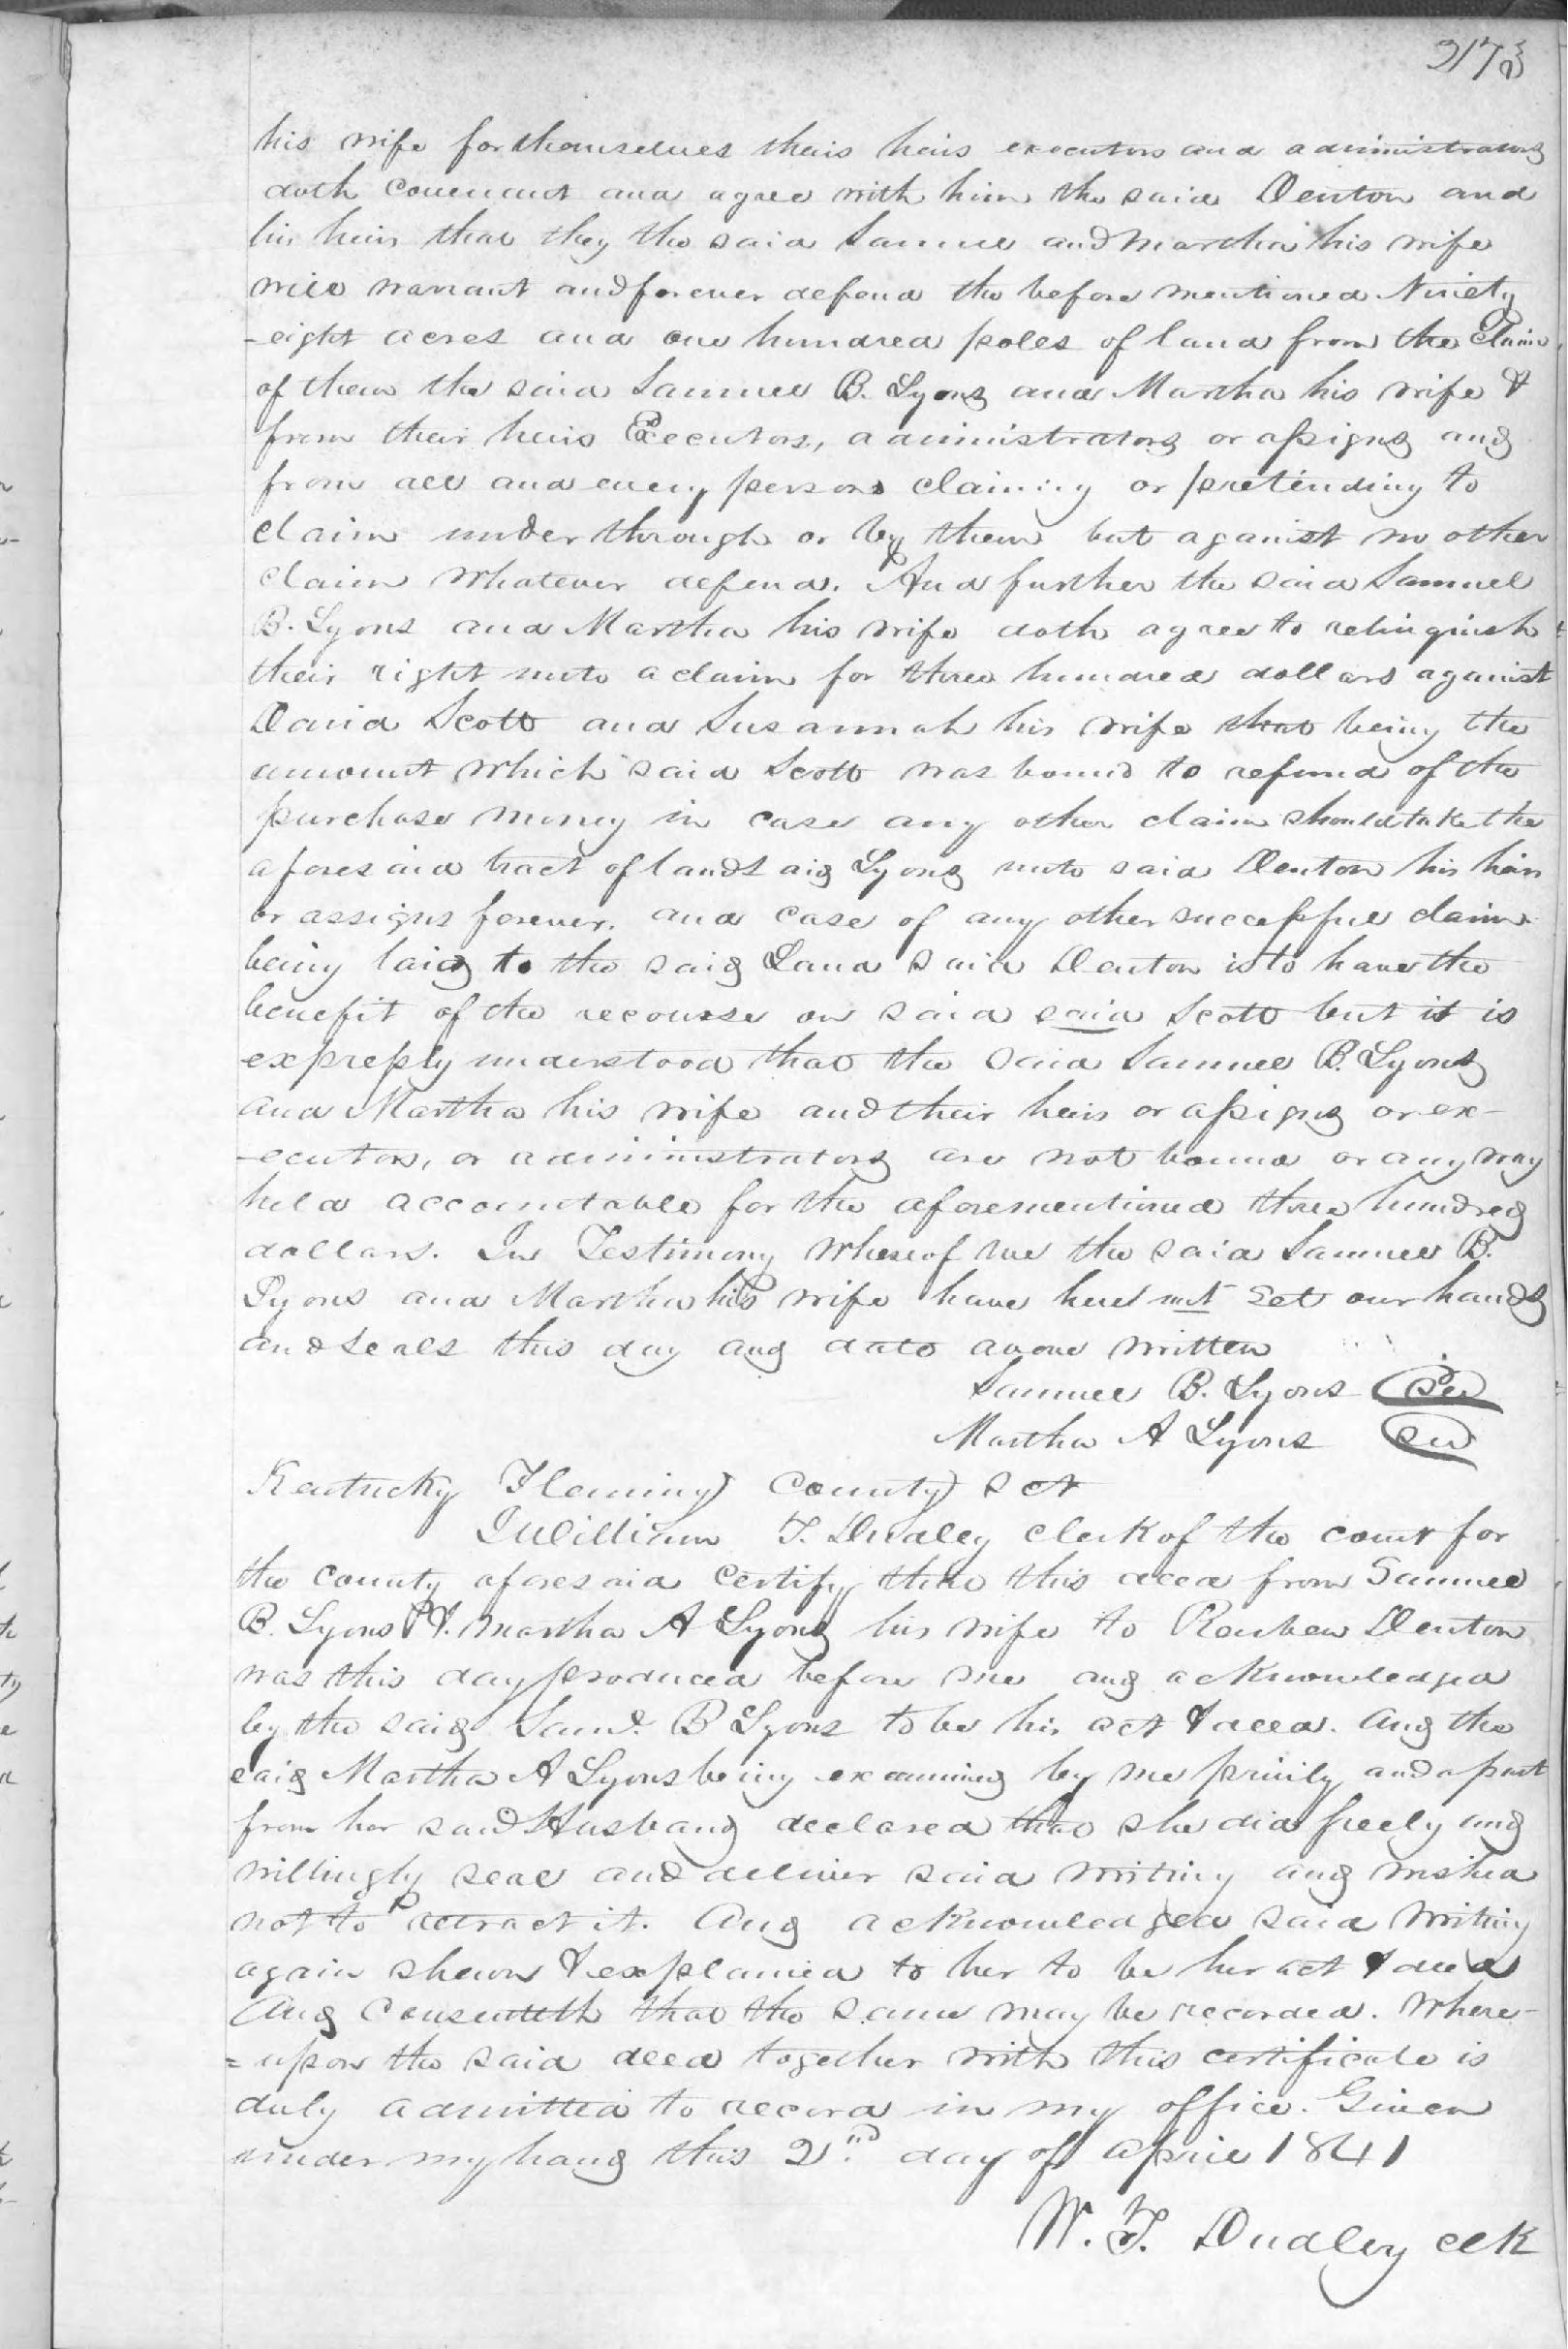 273
his wife for themselves their heirs executors and administrators
doth covenant and agree with him the said Denton and
his heirs that they the said Samuel and Martha his wife
will warrant and forever defend the before mentioned Ninety
-eight acres and one hundred poles of land from the Claim
of them the said Samuel B. Lyons and Martha his wife &
from their heirs Executors, administrators or assigns and
from all and every persons claiming or pretending to
claim under through or by them but against no other
claim whatever defend. And further the said Samuel
B. Lyons and Martha his wife doth agree to relinquish
their right unto a claim for three hundred dollars against
David Scott and Susannah his wife that being the
amount which said Scott was bound to refund of the
purchase money in case any other claim should take the
aforesaid tract of land said Lyons unto said Denton his heirs
or assigns forever. and case of any other successful claim
being laid to the said Land said Denton is to have the
benefit of the recourse on said said Scott but it is
expressly understood that the said Samuel B. Lyons
and Martha his wife and their heirs or assigns or ex-
-ecutors, or administrators are not bound or any way
held accountable for the aforementioned three hundred
dollars. In Testimony Whereof we the said Samuel B.
Lyons and Martha his wife have here unt set our hands
and seals this day and date above written
Samuel B. Lyons Seal
Martha A Lyons Seal
Kentucky Fleming County Sct
I William T. Dudley clerk of the court for
the county aforesaid Certify that this deed from Samuel
B. Lyons &. Martha A Lyons his wife to Reuben Denton
was this day produced before me and acknowledged
by the said Saml. B Lyons to be his act & deed. And the
said Martha A Lyons being examined by me privily and apart
from her said Husband declared that she did freely and
willingly seal and deliver said writing and wished
not to retract it. And acknowledged said Writing
again shewn & explained to her to be her act & deed
And Consenteth that the same may be recorded. Where-
=upon the said deed together with this certificate is
duly admitted to record in my office. Given
under my hand this 2nd. day of April 1841
W. T. Dudley clk